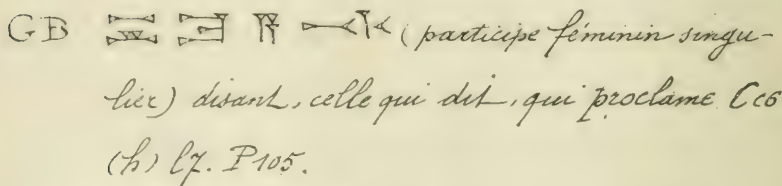 GB (participe féminin singu-
lier) disant, celle qui dit, qui proclame Cc6
(h) l7. P105.